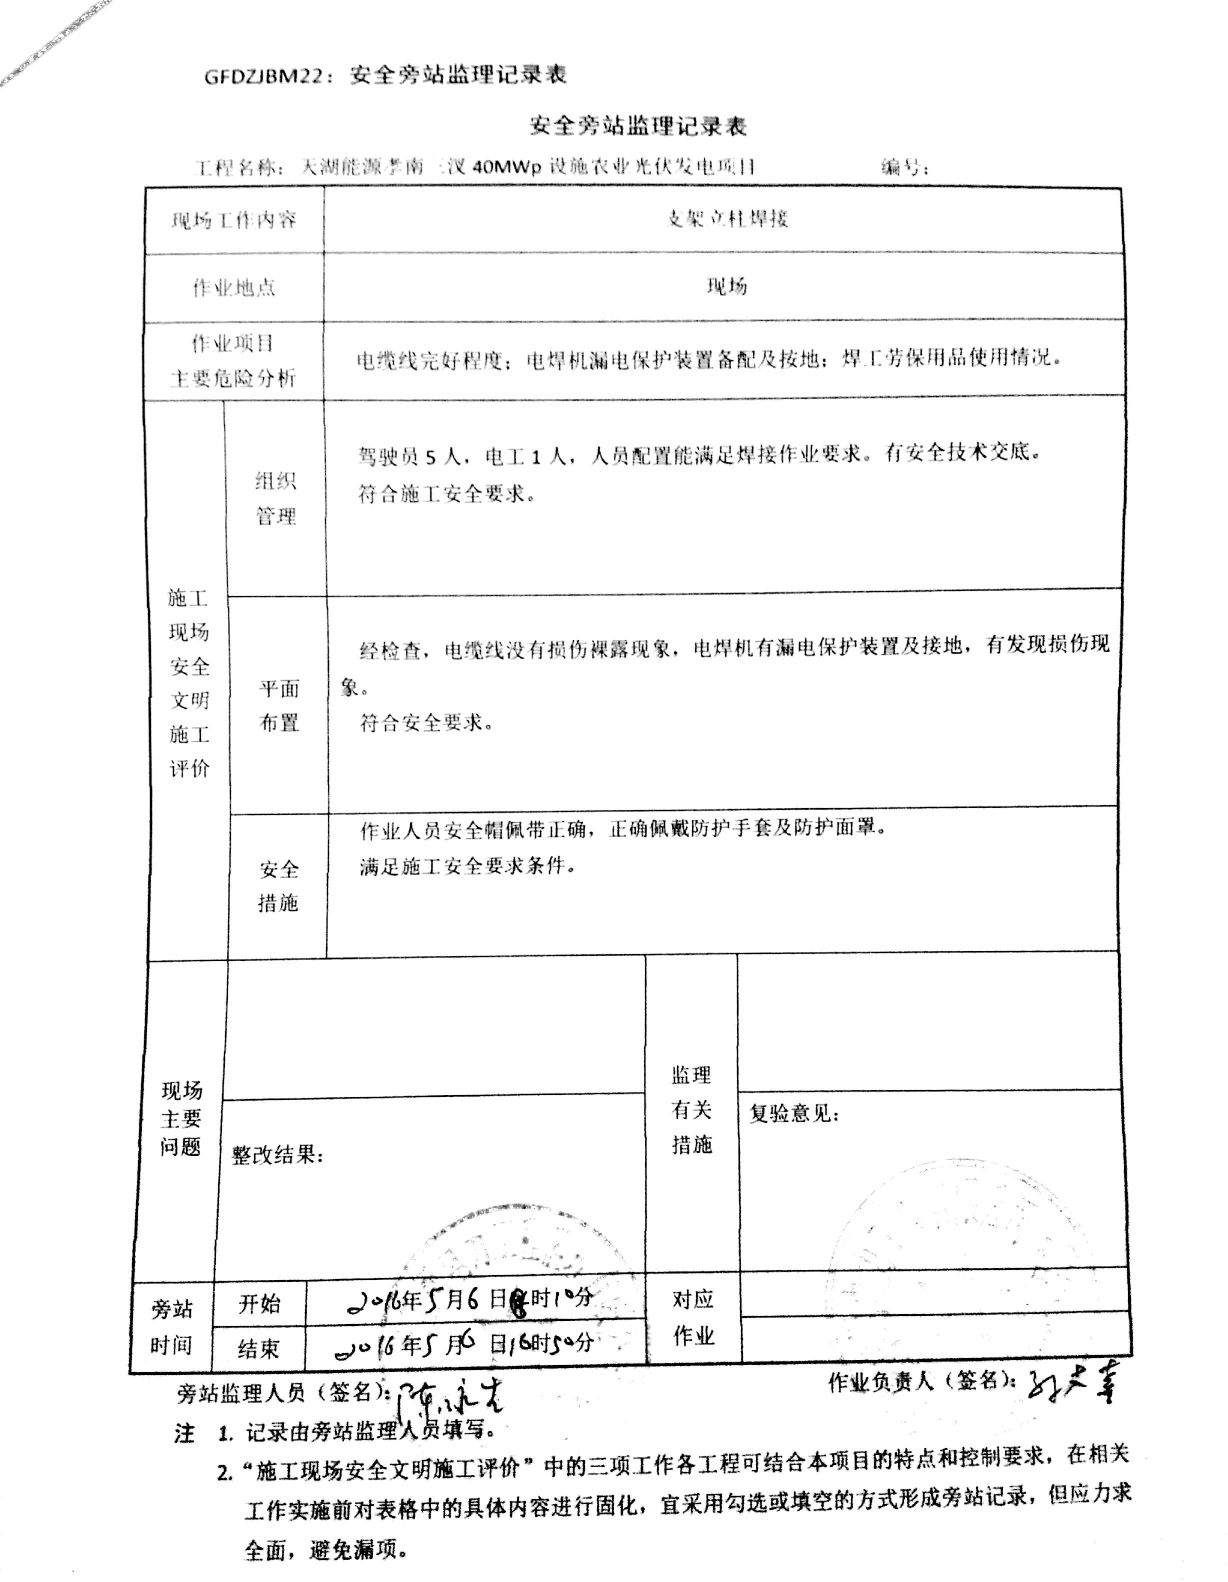 GFDZJBM22：安全旁站监理记录表
安全旁站监理记录表
工程名称：天湖能源孝南三汊 40MWp 设施农业光伏发电项目 编号：
现场工作内容 支架立柱焊接
作业地点 现场
作业项目
主要危险分析
电缆线完好程度；电焊机漏电保护装置备配及按地；焊工劳保用品使用情况。
施工
现场
安全
文明
施工
评价
组织
管理
驾驶员 5 人，电工 1 人，人员配置能满足焊接作业要求。有安全技术交底。
符合施工安全要求。
平面
布置
经检查，电缆线没有损伤裸露现象，电焊机有漏电保护装置及接地，有发现损伤现
象。
符合安全要求。
安全
措施
作业人员安全帽佩带正确，正确佩戴防护手套及防护面罩。
满足施工安全要求条件。
现场
主要
问题
整改结果：
监理
有关
措施
复验意见：
旁站
时间
开始 2016年5月6日8时10分
结束 2016年5月6日16时50分
对应
作业
旁站监理人员（签名）： 作业负责人（签名）：
注 1. 记录由旁站监理人员填写。
2. “施工现场安全文明施工评价”中的三项工作各工程可结合本项目的特点和控制要求，在相关
工作实施前对表格中的具体内容进行固化，宜采用勾选或填空的方式形成旁站记录，但应力求
全面，避免漏项。